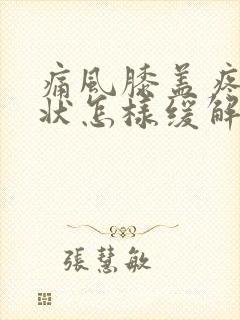 痛風膝盖疼
状怎様缓解
張慧敏